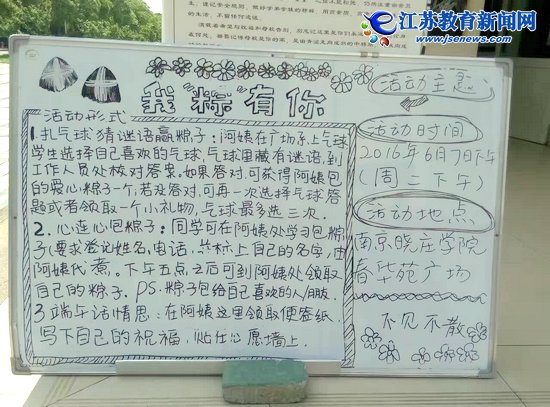 江苏教育新闻网
www.jsenews.com
我“粽”有你
活动形式
1.扎气球猜谜语赢粽子：阿姨在广场系上气球
学生选择自己喜欢的气球，气球里藏有谜语，到
工作人员处核对答案。如果答对，可获得阿姨包
的爱心粽子一个，若没答对，可再一次选择气球答
题或者领取一个小礼物，气球最多选三次.
2.心连心包粽子：同学可在阿姨处学习包粽
子（要求登记姓名，电话，并标上自己的名字，由
阿姨代煮。下午五点之后可到阿姨处领取
自己的粽子. PS.粽子包给自己喜欢的人/朋友.
3.端午话情思：在阿姨这里领取便签纸.
写下自己的祝福，贴在心愿墙上.
活动主题
活动时间
2016年6月7日下午
（周二下午）
活动地点
南京晓庄学院
春华苑广场
不见不散